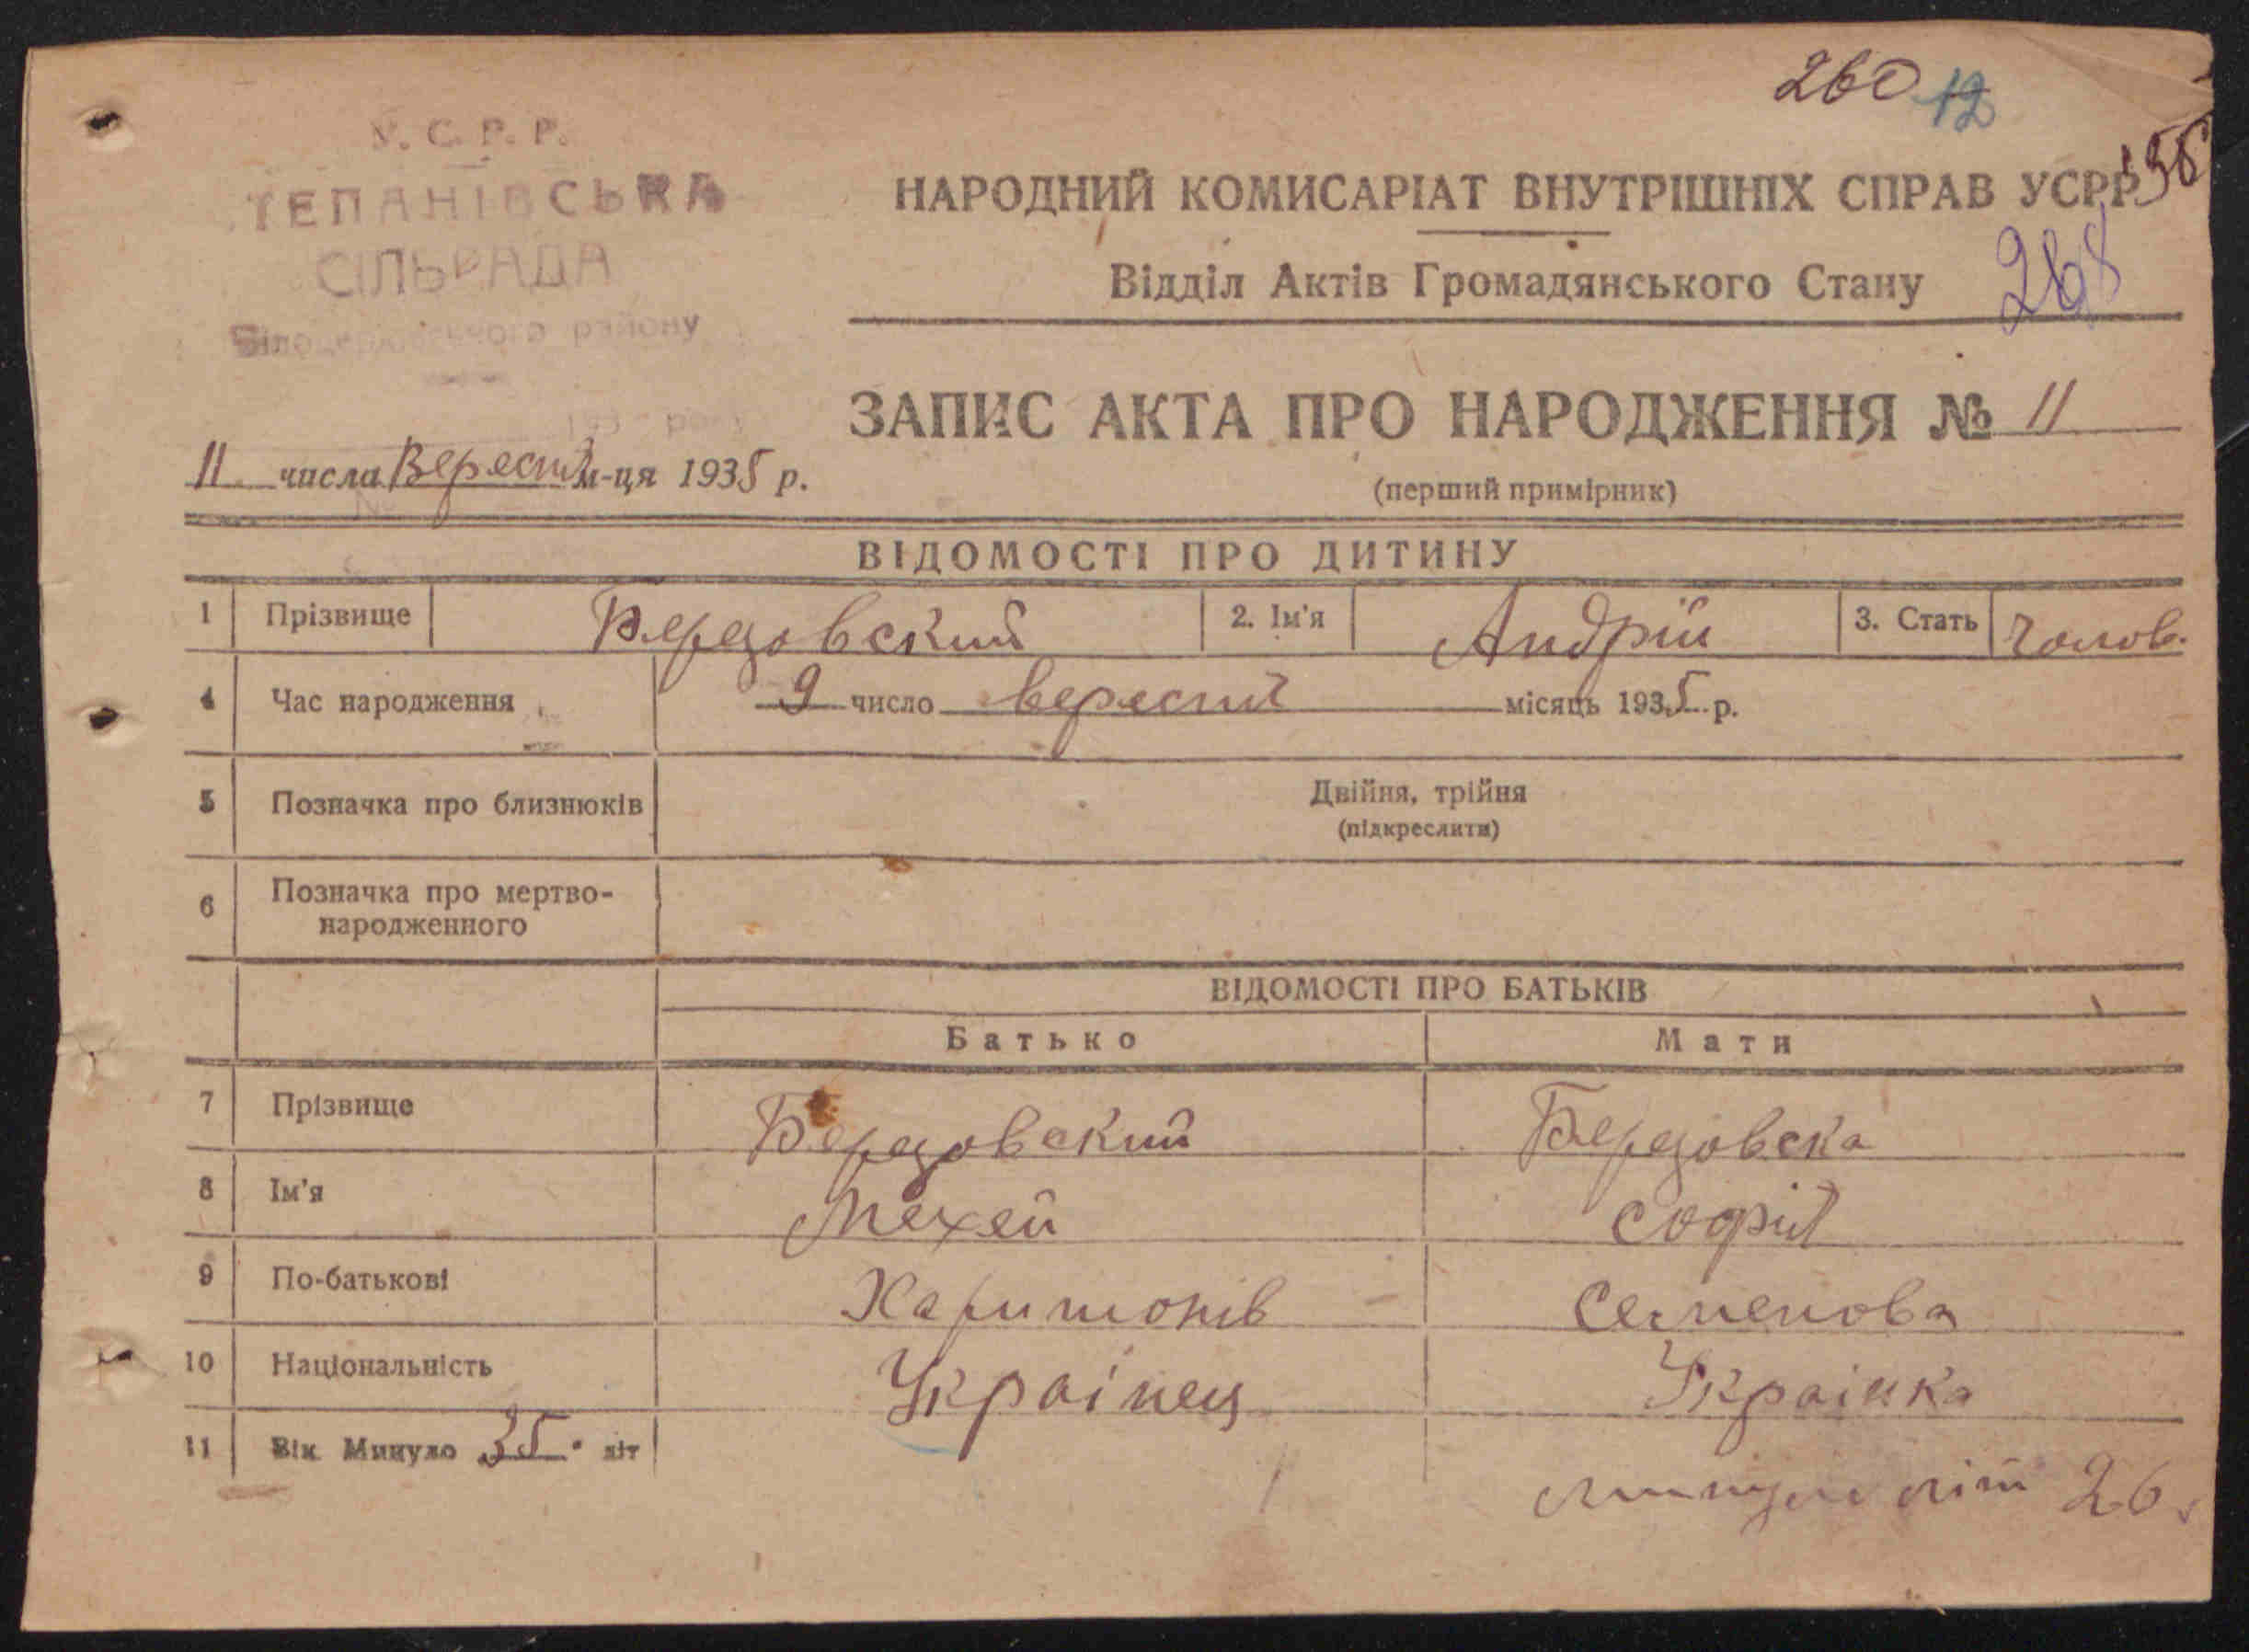 260 12
У. С. Р. Р.
ТЕПАНІВСЬКА
СІЛЬРАДА
Білоцерківського району
193 року
НАРОДНИЙ КОМИСАРІАТ ВНУТРІШНІХ СПРАВ УСРР
Відділ Актів Громадянського Стану 268
ЗАПИС АКТА ПРО НАРОДЖЕННЯ № 11
(перший примірник)
11 числа Вересня м-ця 1935 р.
ВІДОМОСТІ ПРО ДИТИНУ
1 Прізвище Березовский 2. Ім'я Андрій 3. Стать Чолов.
4 Час народження 9 число вересня місяць 1935 р.
5 Позначка про близнюків Двійня, трійня
(підкреслити)
6 Позначка про мертво-
народженного
ВІДОМОСТІ ПРО БАТЬКІВ
Батько Мати
7 Прізвище Березовский Березовска
8 Ім'я Мехей Софія
9 По-батькові Харитонів Семенова
10 Національність Українець Українка
11 Вік Минуло 35 літ
минуло літ 26